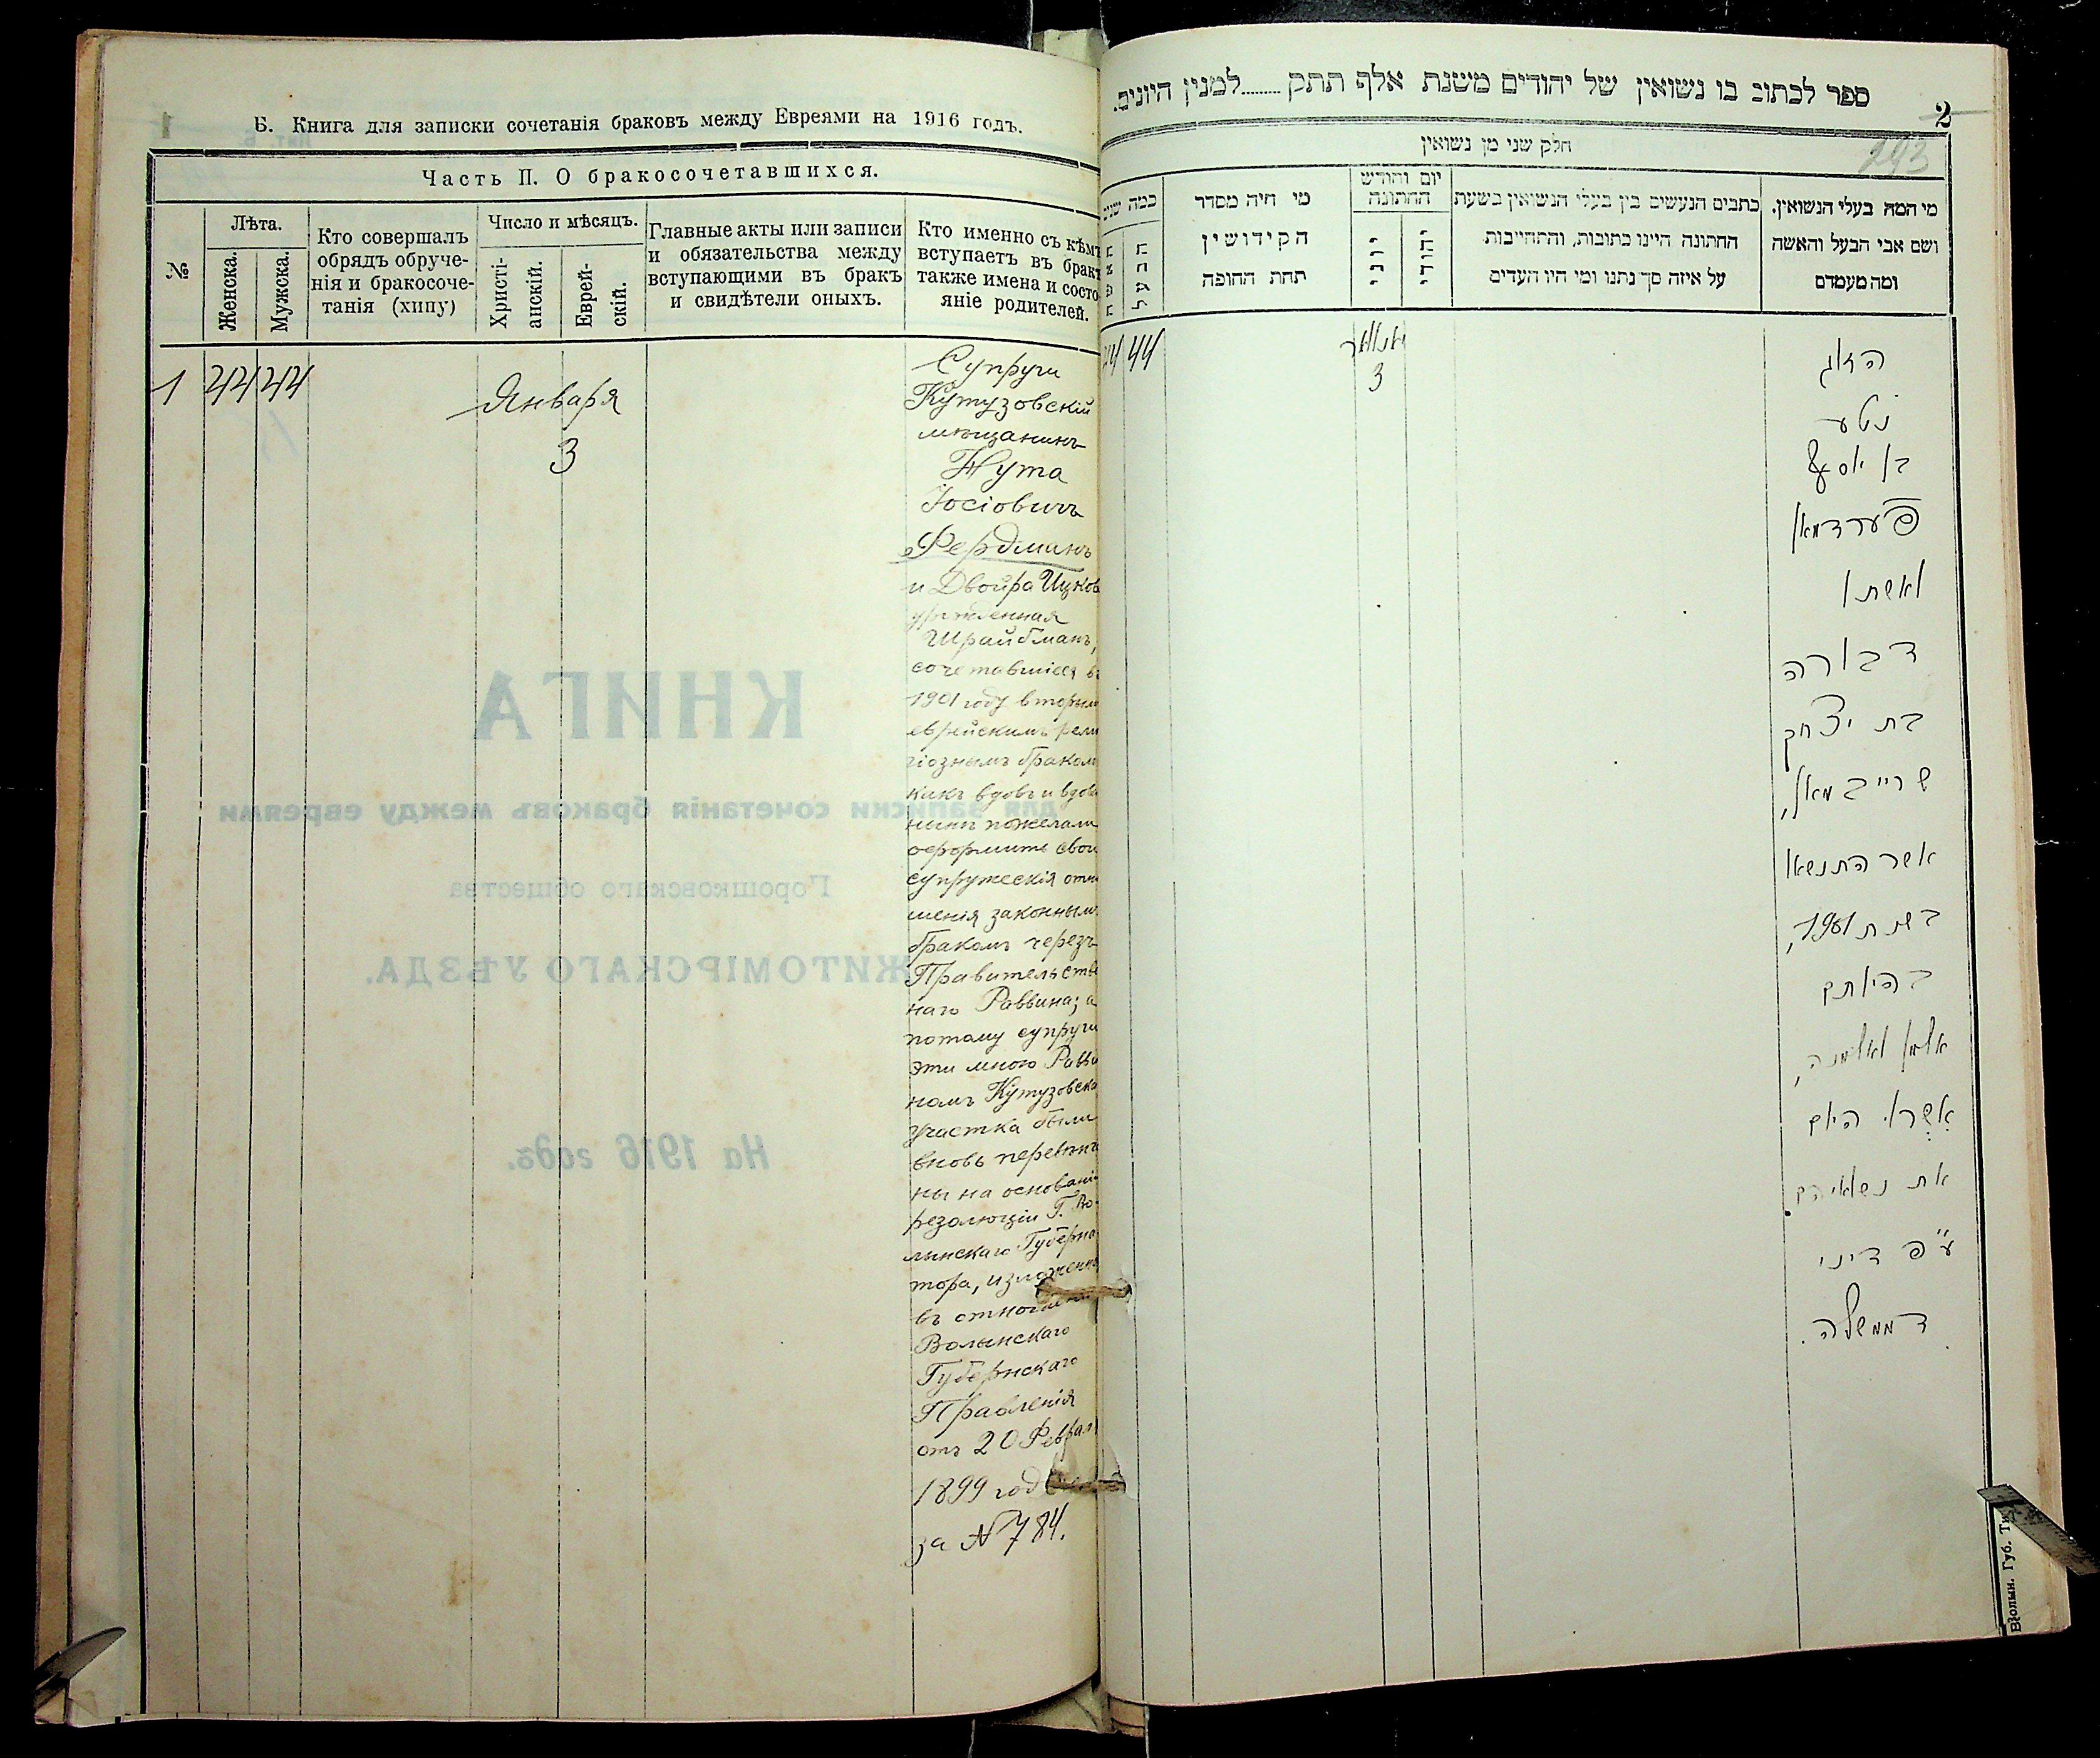 Б. Книга для записки сочетанія браковъ между Евреями на 1916 годъ.
Часть II. О бракосочетавшихся.
№
Лѣта.
Женска.
Мужска.
Кто совершалъ
обрядъ обруче-
нія и бракосоче-
танія (хипу)
Число и мѣсяцъ.
Христі-
анскій.
Еврей-
скій.
Главные акты или записи
и обязательства между
вступающими въ бракъ
и свидѣтели оныхъ.
Кто именно съ кѣмъ
вступаетъ въ бракъ
также имена и состо-
яніе родителей.
1 44 44
Января
3
Супруги
Кутузовскій
мѣщанинъ
Нута
Іосіовичъ
Фердманъ
и Двойра Ицков
урожденная
Шрайбманъ,
сочетавшіеся въ
1901 году вторым
еврейскимъ рели
гіознымъ браком
какъ вдовъ и вдов
пожелали
оформить свои
супружескія отно
шенія законнымъ
бракомъ черезъ
Правительстве
наго Раввина; а
потому супруги
эти мною Равви
номъ Кутузовска
участка были
вновь перевѣнча
ны на основаніи
резолюціи Г. Во-
лынскаго Губерна
тора, изложенн
въ отношеніи
Волынскаго
Губернскаго
Правленія
отъ 20 Феврал
1899 год
за № 784.
КНИГА
для записки сочетанія браковъ между евреями
Горошковскаго общества
ЖИТОМІРСКАГО УѢЗДА.
На 1916 годъ.
ספר לכתוב בו נשואין של יהודים משנת אלף תתק........למנין היונים.
2
293
חלק שני מן נשואין
כמה שנים
מי היה מסדר
הקידושין
תחת החופה
יום וחודש
החתונה
יוני
יהודי
כתבים הנעשים בין בעלי הנשואין בשעת
החתונה היינו כתובות, והתחייבות
על איזה סך נתנו ומי היו העדים
מי המה בעלי הנשואין,
ושם אבי הבעל והאשה
ומה מעמדם
44 44
יאנואר
3
הזוג
נוטע
בן יוסף
פערדמאן
ואשתו
דבורה
בת יצחק
שרייבמאן,
אשר התנשאו
בשנת 1901,
בהיותם
אלמן ואלמנה,
אשרו היום
את נשואיהם
ע"פ דיני
דממשלה.
Волын. Губ. Ти